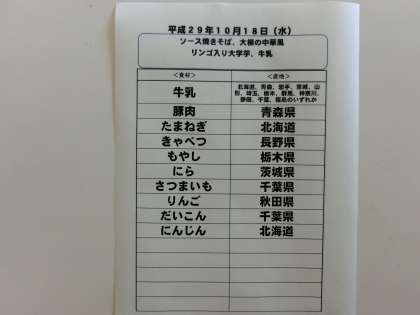 平成29年10月18日（水）
ソース焼きそば、大根の中華風
リンゴ入り大学芋、牛乳
<食材> <産地>
牛乳 北海道、青森、岩手、宮城、山
形、埼玉、栃木、群馬、神奈川、
静岡、千葉、福島のいずれか
豚肉 青森県
たまねぎ 北海道
きゃべつ 長野県
もやし 栃木県
にら 茨城県
さつまいも 千葉県
りんご 秋田県
だいこん 千葉県
にんじん 北海道